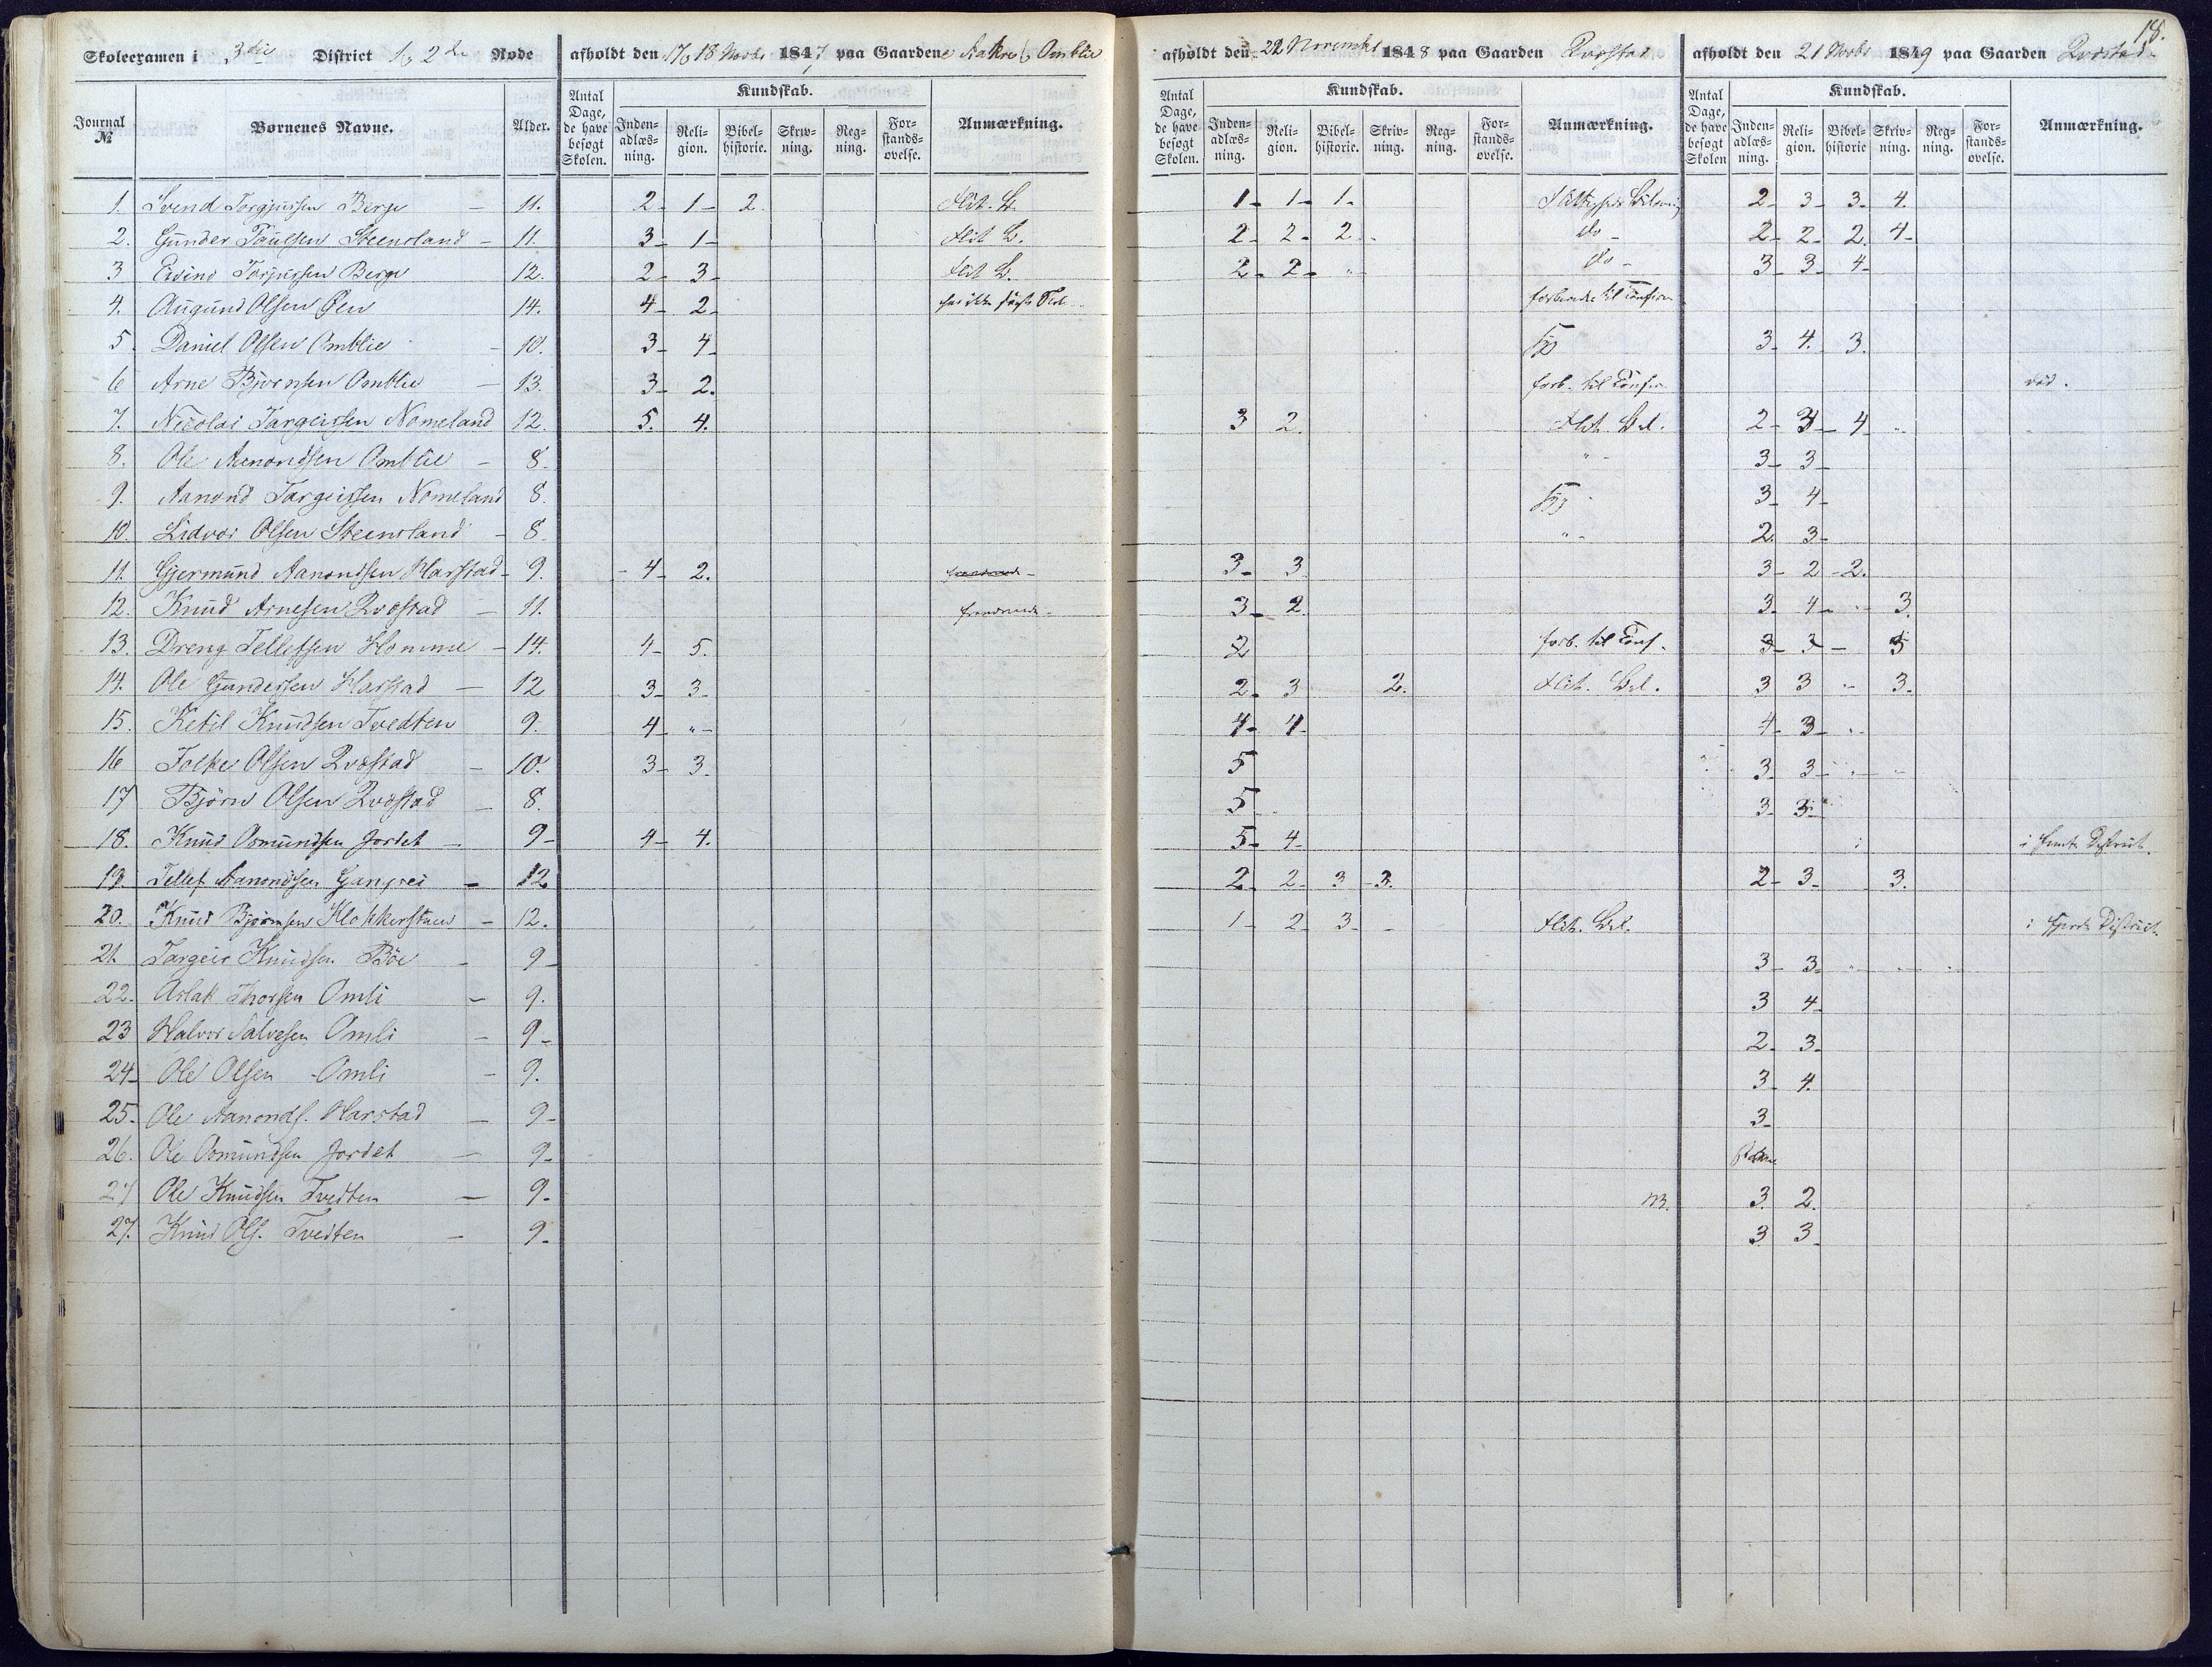 18.
Skoleexamen i 3die District 1ste 2de Rode afholdt den 17, 18 Novbr 1847 paa Gaardene Aakre & Omblie afholdt den 22 November 1848 paa Gaarden Qvostad afholdt den 21 Novbr 1849 paa Gaarden Qvostad
Journal № Børnenes Navne. Alder. Antal Dage, de have besøgt Skolen. Kundskab. Inden-adlæs-ning. Reli-gion. Bibel-historie. Skriv-ning. Reg-ning. For-stands-øvelse. Anmærkning. Antal Dage, de have besøgt Skolen. Kundskab. Inden-adlæs-ning. Reli-gion. Bibel-historie. Skriv-ning. Reg-ning. For-stands-øvelse. Anmærkning. Antal Dage, de have besøgt Skolen Kundskab. Inden-adlæs-ning. Reli-gion. Bibel-historie Skriv-ning. Reg-ning. For-stands-øvelse. Anmærkning.
1. Svend Torgjussen Berge - 11. 2- 1- 2. Flit. 1- 1- 1- 2- 3- 3- 4.
2. Gunder Paulsen Steensland - 11. 3- 1- Flit B. 2- 2- 2- do- 2- 2- 2. 4-
3 Eivind Torjussen Berge 12. 2- 3- Flit B. 2- 2- " do- 3- 3- 4-
4. Augund Olsen Øen 14. 4- 2- forbered. til Confirm
5. Daniel Olsen Omblie - 10. 3- 4- syg 3- 4. 3.
6 Arne Bjørnsen Omblie - 13. 3- 2. forb. til Confir. död.
7. Nicolai Targeissen Nomeland 12. 5. 4. 3 2. Flit. Bel. 2- 3- 4-
8. Ole Aanondsen Omblie - 8. " - 3- 3-
9. Aanond Targeissen Nomeland 8. syg 3- 4-
10. Lidvor Olsen Steensland - 8. " - 2. 3-
11. Gjermund Aanondsen Harstad - 9. - 4- 2. 3- 3. 3- 2- 2.
12. Knud Arnesen Qvostad - 11. 3- 2. 3- 4- 3.
13. Dreng Tellefsen Homme - 14. 4- 5. 2 forb. til Conf. 3- 3- 5
14. Ole Gundersen Harstad - 12 3- 3- 2- 3 2. Flit. Bel. 3 3 3.
15. Ketil Knudsen Tvedten 9. 4- "- 4- 4- 4- 3-
16 Folke Olsen Qvostad - 10. 3- 3. 5 3- 3-
17 Bjørn Olsen Qvostad - 8. 5 3- 3-
18. Knud Osmundsen Jordet - 9- 4- 4. 5- 4- i femte District.
19 Tellef Aanondsen Gangsei - 12 2- 2- 3 - 3. 2- 3- 3.
20. Knud Bjørnsen Klokkerstuen - 12. 1- 2- 3- - Flit. Bel. i fjerde District.
21. Targeir Knudsen Böe - 9- 3- 3-
22. Aslak Thorsen Omli - 9. 3 4-
23 Halvor Salvesen Omli - 9- 2- 3-
24- Ole Olsen Omli - 9. 3- 4.
25- Ole Aanonds. Harstad - 9- 3-
26. Ole Osmundsen Jordet - 9-
27 Ole Knudsen Tvedten - 9- 3. 2.
27. Knud Ols. Tvedten - 9- 3 3-